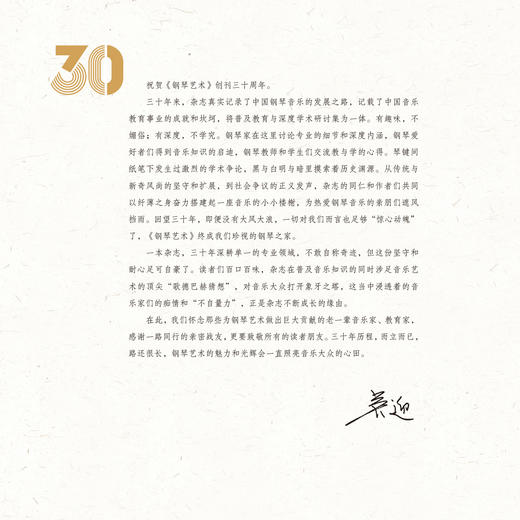 30
祝贺《钢琴艺术》创刊三十周年。
三十年来，杂志真实记录了中国钢琴音乐的发展之路，记载了中国音乐
教育事业的成就和坎坷，将普及教育与深度学术研讨集为一体。有趣味，不
媚俗；有深度，不学究。钢琴家在这里讨论专业的细节和深度内涵，钢琴爱
好者们得到音乐知识的启迪，钢琴教师和学生们交流教与学的心得。琴键间
纸笔下发生过激烈的学术争论，黑与白明与暗里摸索着历史渊源。从传统与
新奇风尚的坚守和扩展，到社会争议的正义发声，杂志的同仁和作者们共同
以纤薄之身奋力搭建起一座音乐的小小楼榭，为热爱钢琴音乐的亲朋们遮风
挡雨。回望三十年，即便没有大风大浪，一切对我们而言也足够“惊心动魄”
了，《钢琴艺术》终成我们珍视的钢琴之家。
一本杂志，三十年深耕单一的专业领域，不敢自称奇迹，但这份坚守和
耐心足可自豪了。读者们百口百味，杂志在普及音乐知识的同时涉足音乐艺术
的顶尖“歌德巴赫猜想”，对音乐大众打开象牙之塔，这当中浸透着的音
乐家们的痴情和“不自量力”，正是杂志不断成长的缘由。
在此，我们怀念那些为钢琴艺术做出巨大贡献的老一辈音乐家、教育家，
感谢一路同行的亲密战友，更要致敬所有的读者朋友。三十年历程，而立而已，
路还很长，钢琴艺术的魅力和光辉会一直照亮音乐大众的心田。